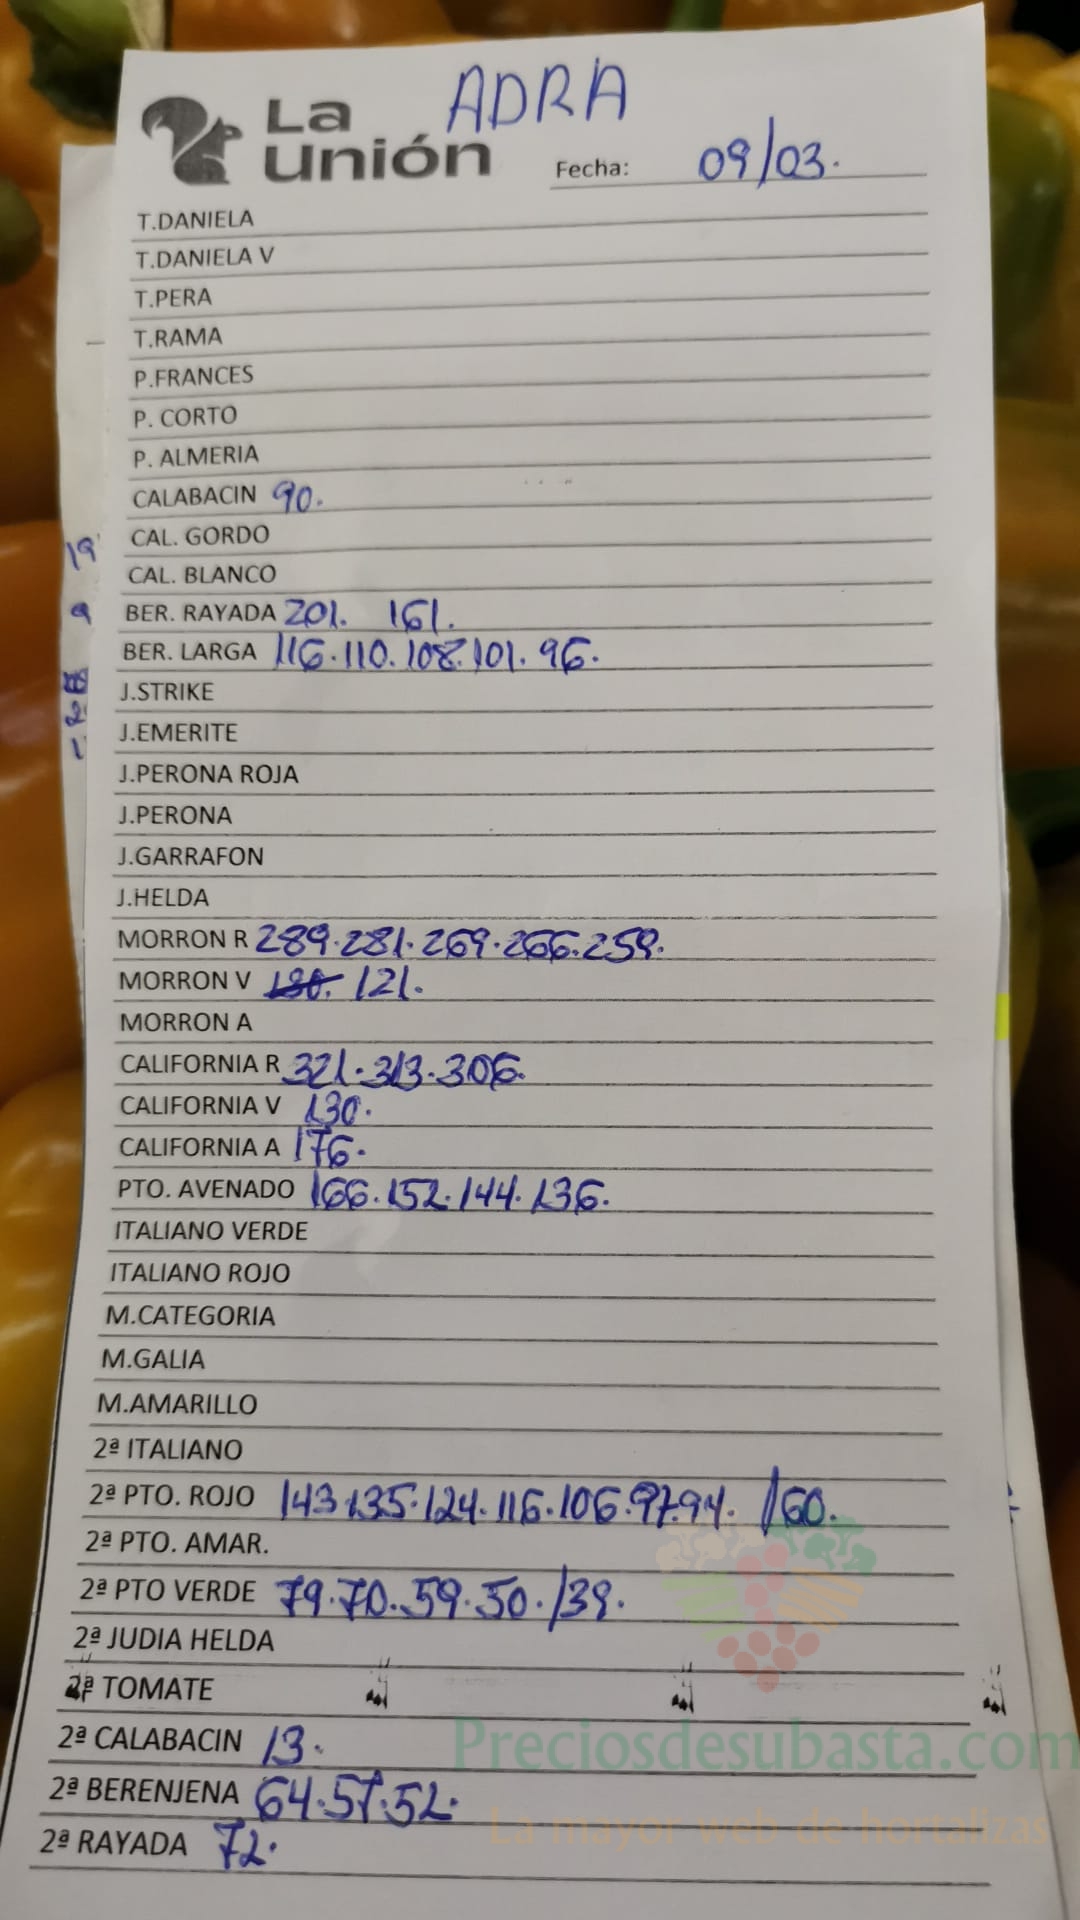 ADRA
La
unión
Fecha: 09/03.
T.DANIELA
T.DANIELA V
T.PERA
T.RAMA
P.FRANCES
P. CORTO
P. ALMERIA
CALABACIN 90.
CAL. GORDO
CAL. BLANCO
BER. RAYADA 201. 161.
BER. LARGA 116.110.108.101.96.
J.STRIKE
J.EMERITE
J.PERONA ROJA
J.PERONA
J.GARRAFON
J.HELDA
MORRON R 289.281.269.266.259.
MORRON V 121.
MORRON A
CALIFORNIA R 321.313.306.
CALIFORNIA V 130.
CALIFORNIA A 176.
PTO. AVENADO 166.152.144.136.
ITALIANO VERDE
ITALIANO ROJO
M.CATEGORIA
M.GALIA
M.AMARILLO
2ª ITALIANO
2ª PTO. ROJO 143.135.124.116.106.97.94. /60.
2ª PTO. AMAR.
2ª PTO VERDE 79.70.59.50./39.
2ª JUDIA HELDA
2ª TOMATE
2ª CALABACIN 13.
Preciosdesubasta.com
2ª BERENJENA 64.57.52.
La mayor web de hortalizas
2ª RAYADA 72.